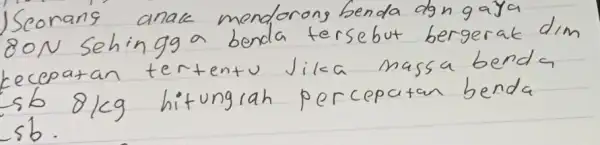 )Seorang anak mendorong benda dgn gaya
80N Sehingga benda tersebut bergerak dlm
kecepatan tertentu Jika massa benda
tsb 8kg hitunglah percepatan benda
tsb.